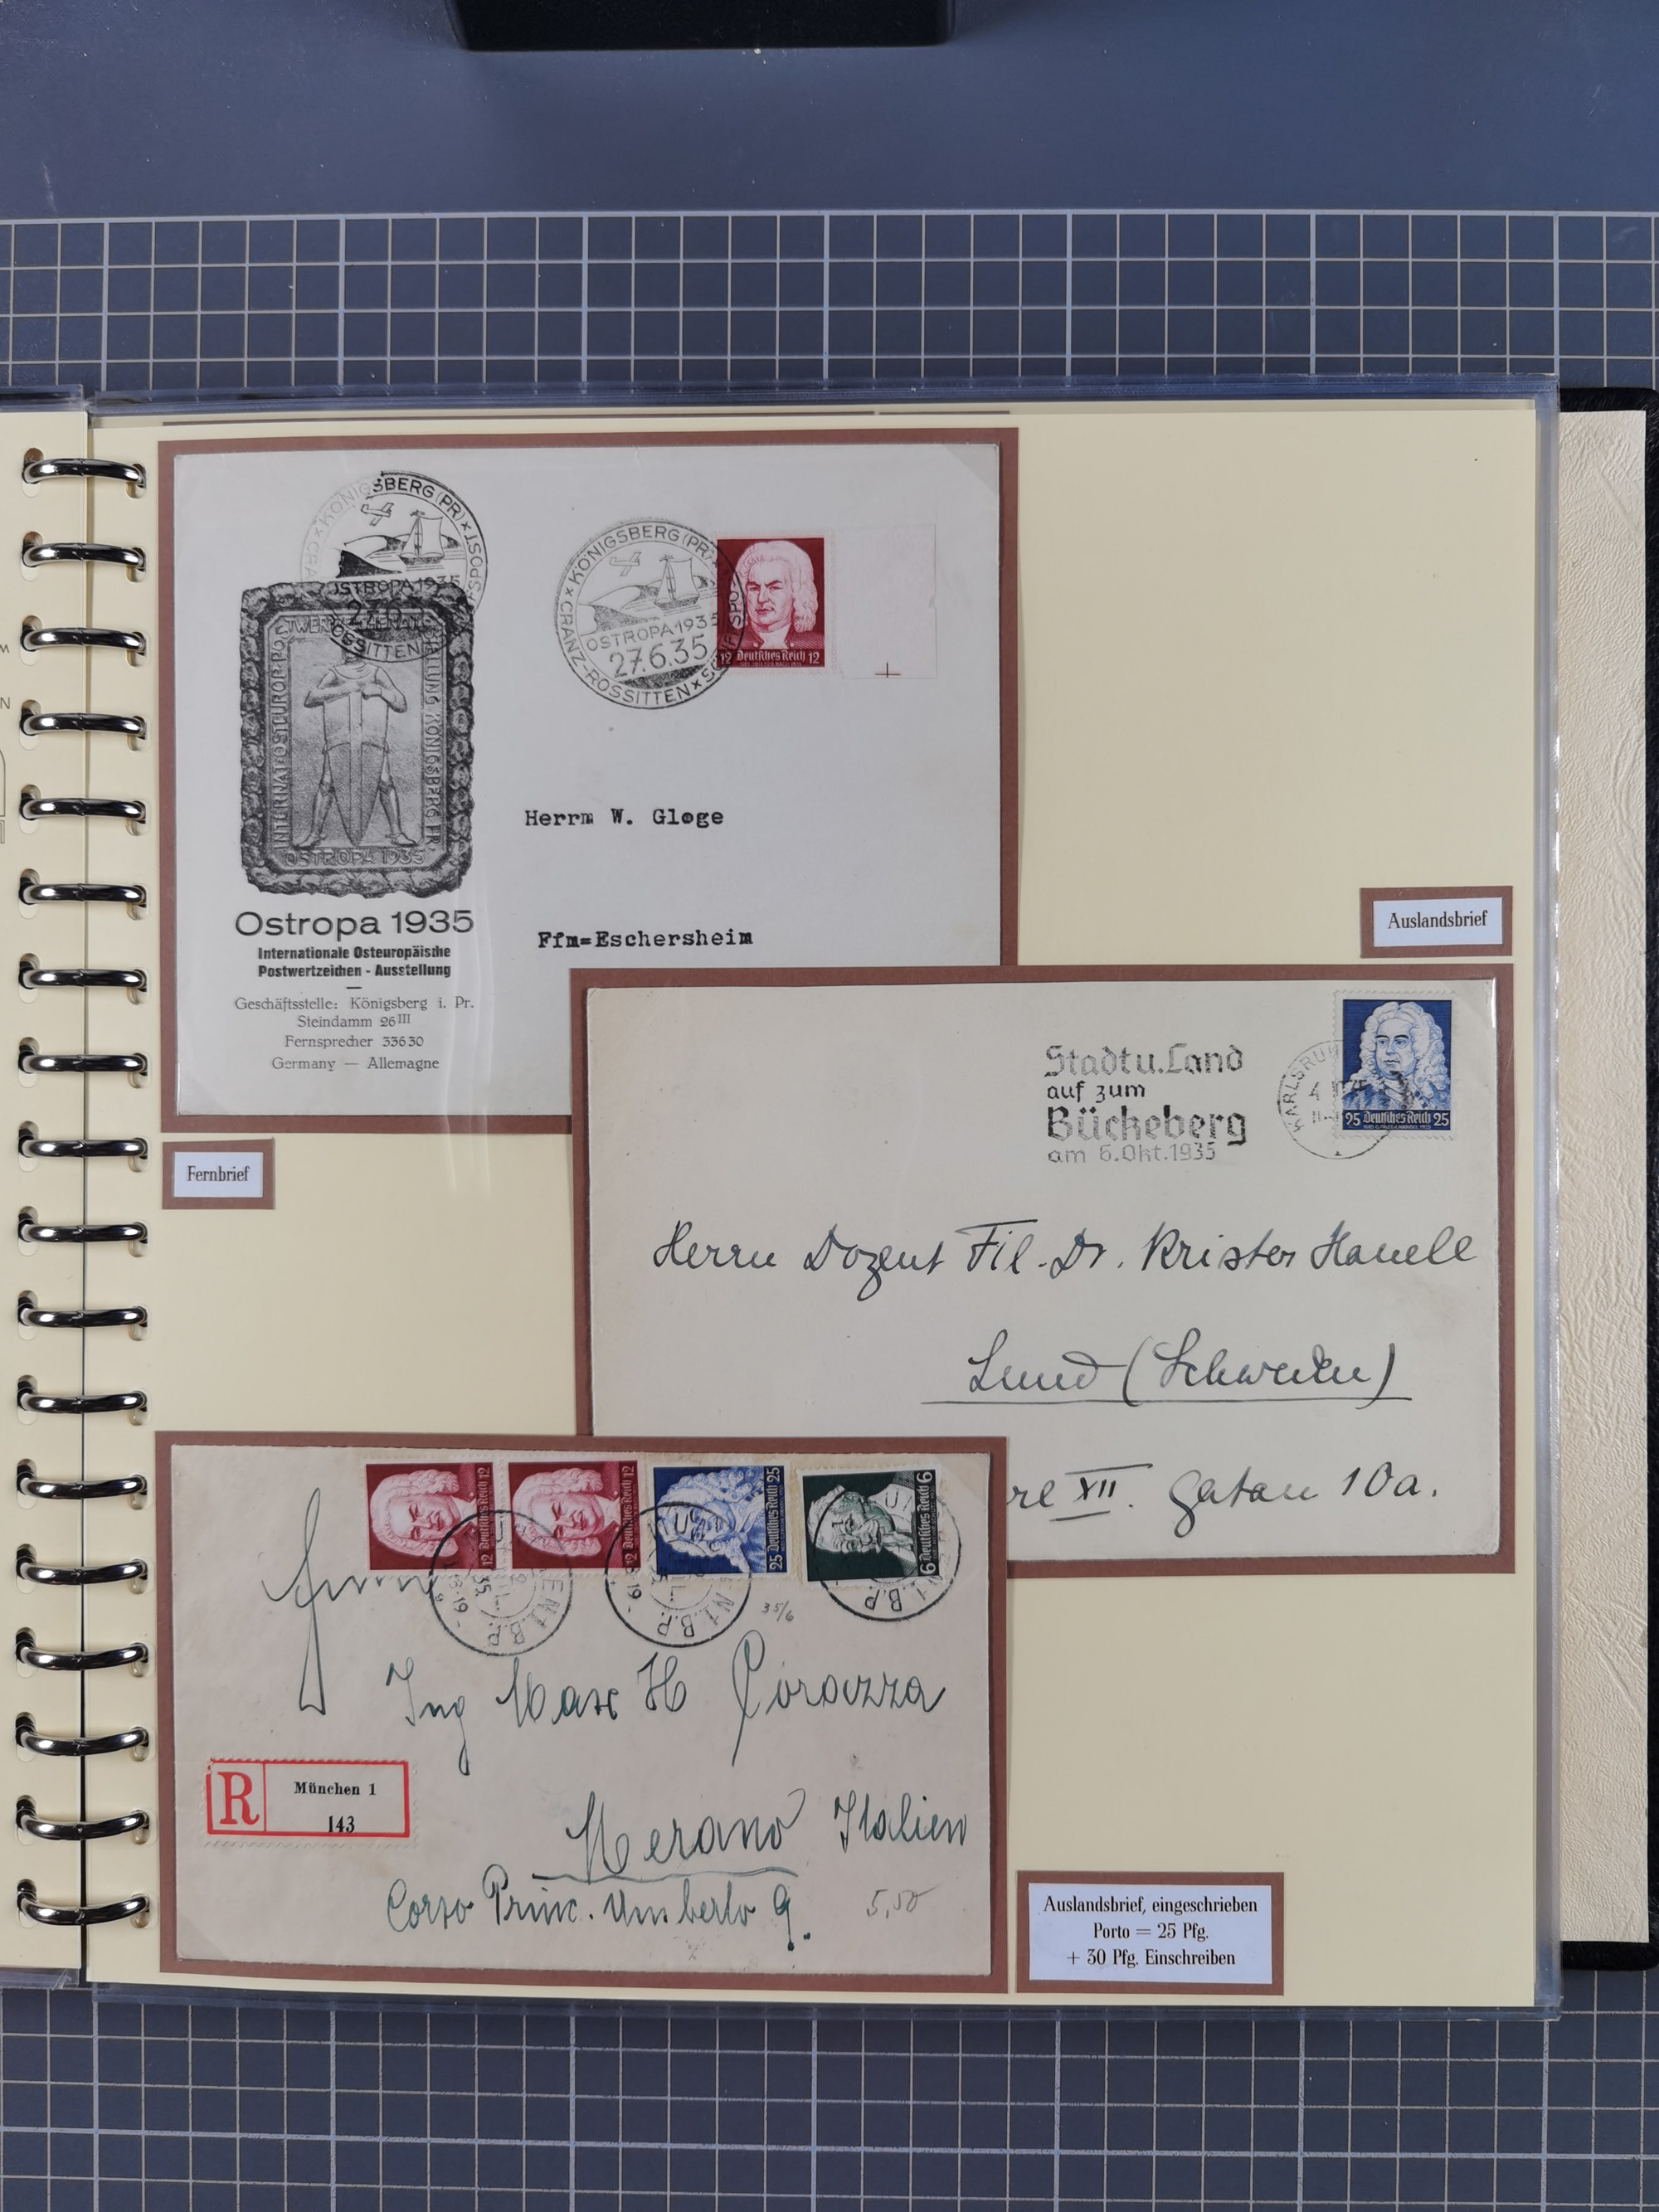 KÖNIGSBERG (PR)
OSTROPA 1935
ROSSITTEN
KÖNIGSBERG (PR) × CRANZ-ROSSITTEN ×
OSTROPA 1935
27.6.35
12 Deutsches Reich 12
INTERNAT. OSTEUROP. KÖNIGSBERG PR.
OSTROPA 1935
Herrn W. Gloge
Ffm=Eschersheim
Ostropa 1935
Internationale Osteuropäische
Postwertzeichen - Ausstellung
Geschäftsstelle: Königsberg i. Pr.
Steindamm 26III
Fernsprecher 33630
Germany — Allemagne
Fernbrief
Auslandsbrief
Stadt u. Land
auf zum
Bückeberg
am 6. Okt. 1935
25 Deutsches Reich 25
Herrn Dozent Fil. Dr. Krister Hanell
Lund (Schweden)
XII. gatan 10a.
12 Deutsches Reich 12
12 Deutsches Reich 12
25 Deutsches Reich 25
6 Deutsches Reich 6
35/6
Ing Max H Corazza
R
München 1
143
Merano Italien
Corso Princ. Umberto 9.
5,50
Auslandsbrief, eingeschrieben
Porto = 25 Pfg.
+ 30 Pfg. Einschreiben